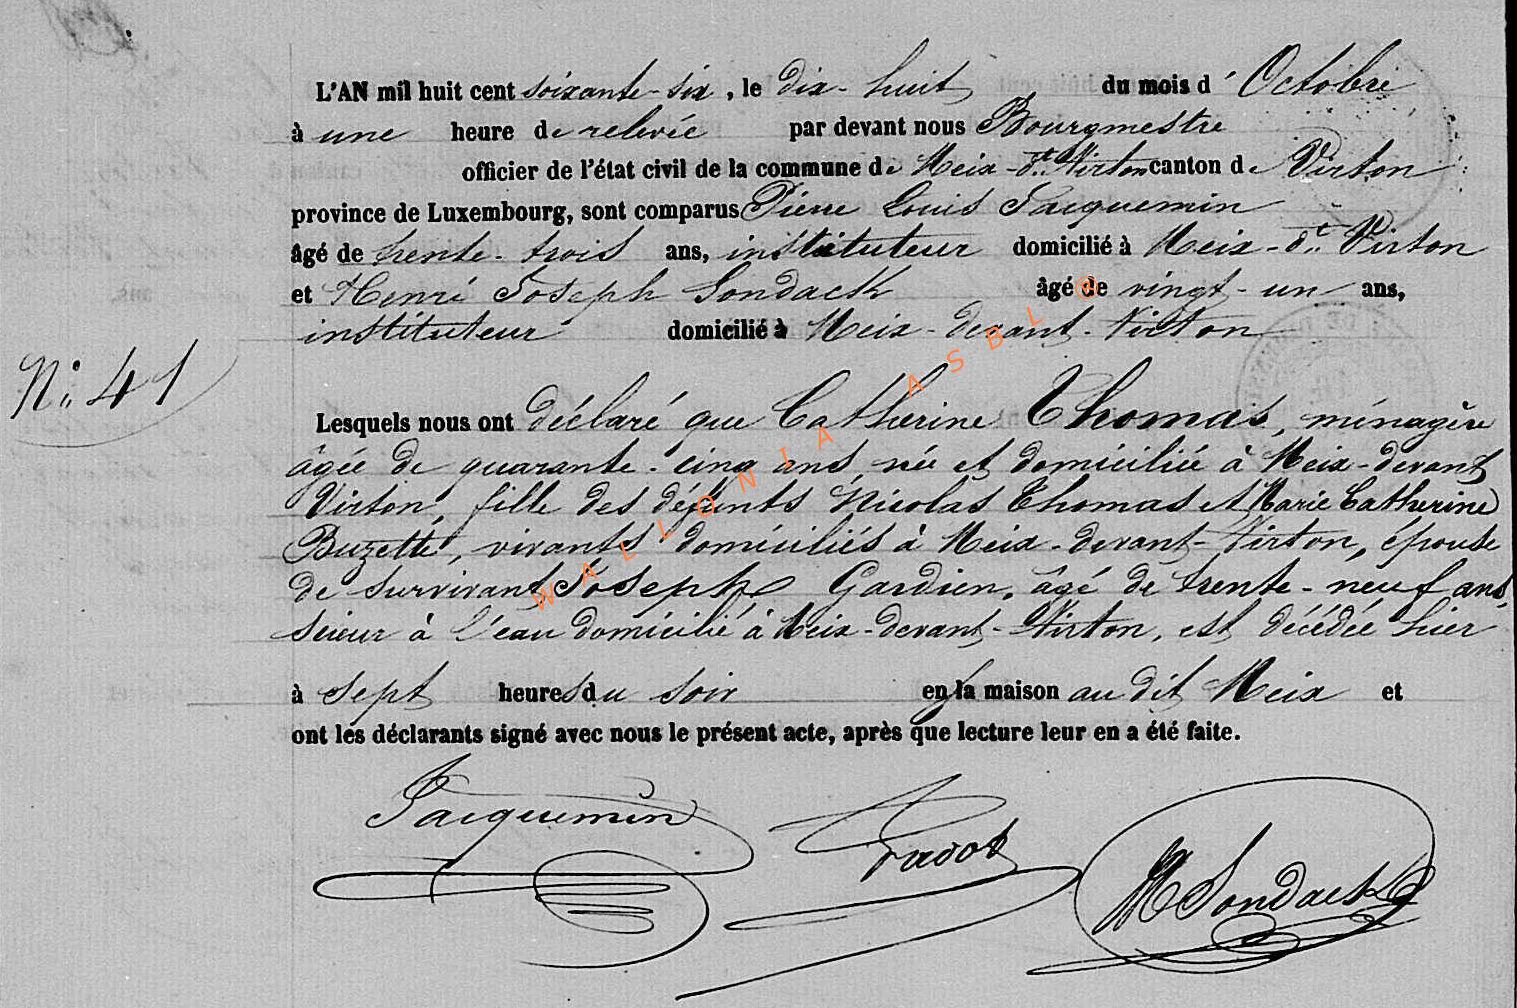 L'AN mil huit cent soixante-six, le dix-huit du mois d'Octobre
à une heure de relevée par devant nous Bourgmestre
officier de l'état civil de la commune de Meix-dt Virton canton de Virton
province de Luxembourg, sont comparus Pierre Louis Jacquemin
âgé de trente-trois ans, instituteur domicilié à Meix-dt Virton
et Henri Joseph Sondack âgé de vingt-un ans,
instituteur domicilié à Meix-devant-Virton
No 41
Lesquels nous ont déclaré que Catherine Thomas, ménagère
âgée de quarante-cinq ans, née et domiciliée à Meix-devant
Virton, fille des défunts Nicolas Thomas et Marie Catherine
Buzette, vivants domiciliés à Meix-devant-Virton, épouse
de survivant Joseph Gardien, âgé de trente-neuf ans,
scieur à l'eau domicilié à Meix-devant-Virton, est décédée hier
à sept heures du soir en la maison au dit Meix et
ont les déclarants signé avec nous le présent acte, après que lecture leur en a été faite.
Jacquemin
H Sondack
WALLONIA ASBL ©